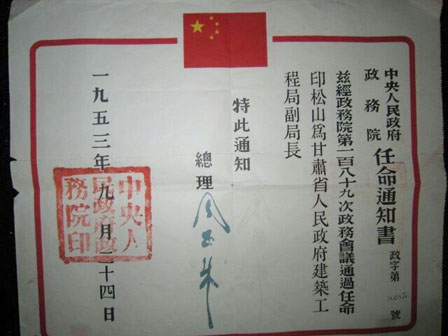 中央人民政府
政務院
任命通知書
政字第
號
茲經政務院第一百八十九次政務會議通過任命
印松山爲甘肅省人民政府建築工
程局副局長
特此通知
總理 周恩来
一九五三年九月二十四日
中央人
民政府政
務院印